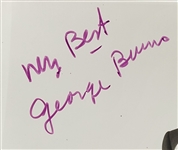 My Best
George Burns